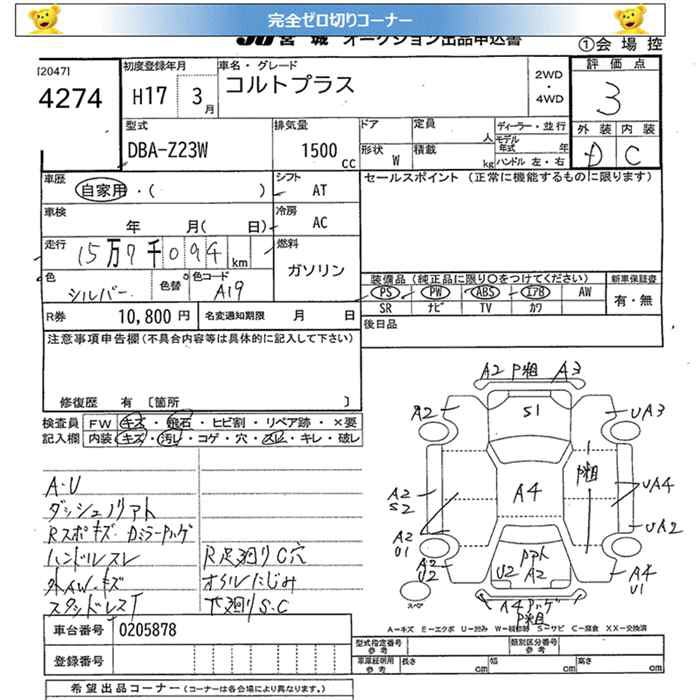 完全ゼロ切りコーナー
JU 宮城 オークション出品申込書
①会場控
[2047]
4274
初度登録年月
H17 3月
車名・グレード
コルトプラス
2WD
・
4WD
評価点
3
外装 内装
D C
型式
DBA-Z23W
排気量
1500 cc
ドア
形状 W
定員 人
積載 kg
ディーラー・並行
モデル年式 年
ハンドル 左・右
車歴
自家用・( )
シフト
AT
車検
年 月( 日)
冷房
AC
走行
15万7千094 km
燃料
ガソリン
色
シルバー
色替
色コード
A19
R券 10,800 円
名変通知期限 月 日
セールスポイント (正常に機能するものに限ります)
装備品 (純正品に限り○をつけてください)
PS PW ABS エアB AW
SR ナビ TV カワ
新車保証書
有・無
後日品
注意事項申告欄(不具合内容等は具体的に記入して下さい)
修復歴 有 [箇所 ]
検査員記入欄
FW キズ・飛石・ヒビ割・リペア跡・×要
内装 キズ・汚レ・コゲ・穴・スレ・キレ・破レ
A・U
ハンドルスレ
外AW.キズ
R足廻りC穴
オイルにじみ
下廻りS.C
A2 P粗 A3
A2
S1
UA3
P粗
A4
UA4
A2
S2
UA2
A2
U1
A2
U2
U2
A2
A4
U1
スペア
P粗
A-キズ E-エクボ U-凹み W-補修跡 S-サビ C-腐食 XX-交換済
車台番号 0205878
登録番号
型式指定番号 参考
類別区分番号 参考
車庫証明用 参考
長さ cm
幅 cm
高さ cm
希望出品コーナー (コーナーは各会場により異なります。)